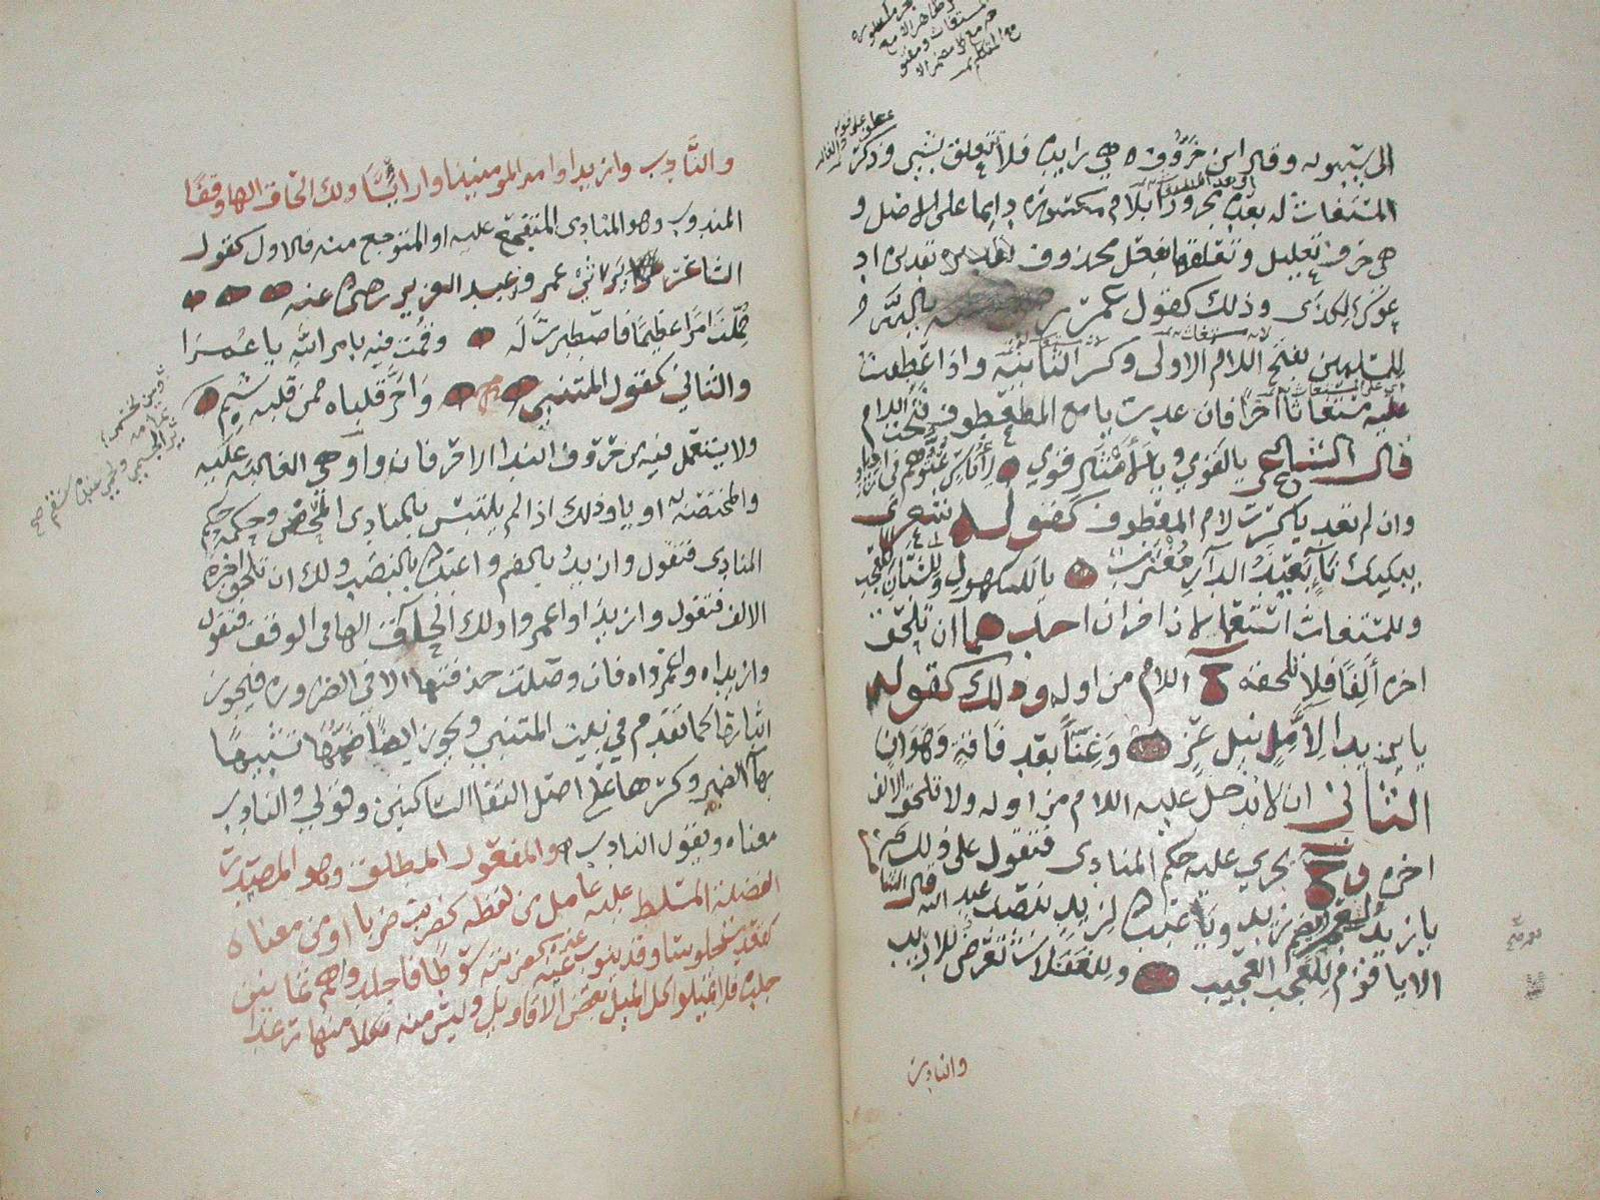 الى سيبويه وقال ابن خروف هي زايدة فلا تتعلق بشي وذكر
المستغاث له بعده مجرورا بلام مكسورة دايما على الاصل و
هي حرف تعليل وتعلقها بفعل محذوف تقديره اد
عوك لكذى وذلك كقول عمر يالله
للمسلمين بفتح اللام الاولى وكسر الثانية واذا عطفت
عليه مستغاثا آخرا فان عدت يا مع المعطوف فتحت اللام
قال الشاعر يالقومي ويالأمثال قومي لأناس عتوهم في ازدياد
وان لم تعد يا كسرت لام المعطوف كقوله
يبكيك ناء بعيد الدار مغترب ياللكهول وللشبان للعجب
وللمستغاث استعمالان اخران احدهما ان تلحق
اخره ألفا فلا تلحقه ح اللام من اوله وذلك كقوله
يا يزيدا لآمل نيل عز وغنا بعد فاقة وهوان
الثاني ان لا تدخل عليه اللام من اوله ولا تلحق الالف
اخره وح يجري عليه حكم المنادى فتقول على ذلك
يا زيد لعمر بضم زيد ويا عبد الله لزيد بنصب عبد الله قال الشاعر
الا يا قوم للعجب العجيب وللغفلات تعرض للاديب
والنادب
والنادب وازيدا وامير المومنينا واراسا ولك الحاق الها وقفا
المندوب وهو المنادى المتفجع عليه او المتوجع منه فالاول كقول
الشاعر يرثي عمر بن عبد العزيز رضي الله عنه
حملت امرا عظيما فاصطبرت له وقمت فيه بامر الله يا عمرا
والثاني كقول المتنبي واحر قلباه ممن قلبه شبم
ولا يستعمل فيه من حروف الندا الا حرفان وا وهي الغالبة عليه
والمختصة به او يا وذلك اذا لم يلتبس بالمنادى المحض وحكمه حكم
المنادى فتقول وازيد بالضم واعبد الله بالنصب ولك ان تلحق اخره
الالف فتقول وازيدا واعمروا ولك الحاق الها في الوقف فتقول
وازيداه واعمرواه فان وصلت حذفتها الا في الضرورة فيجوز
اثباتها كما تقدم في بيت المتنبي ويجوز ايضا ضمها تشبيها
بها الضمير وكسرها على اصل التقا الساكنين وقولي والنادب
معناه ويقول النادب والمفعول المطلق وهو المصدر
الفضلة المسلط عليه عامل من لفظه كضربت ضربا او من معناه
كقعدت جلوسا وقد ينوب عنه غيره كضربته سوطا فاجلدوهم ثمانين
جلدة فلا تميلوا كل الميل بعض الاقاويل وليس منه وكلا منها رغدا